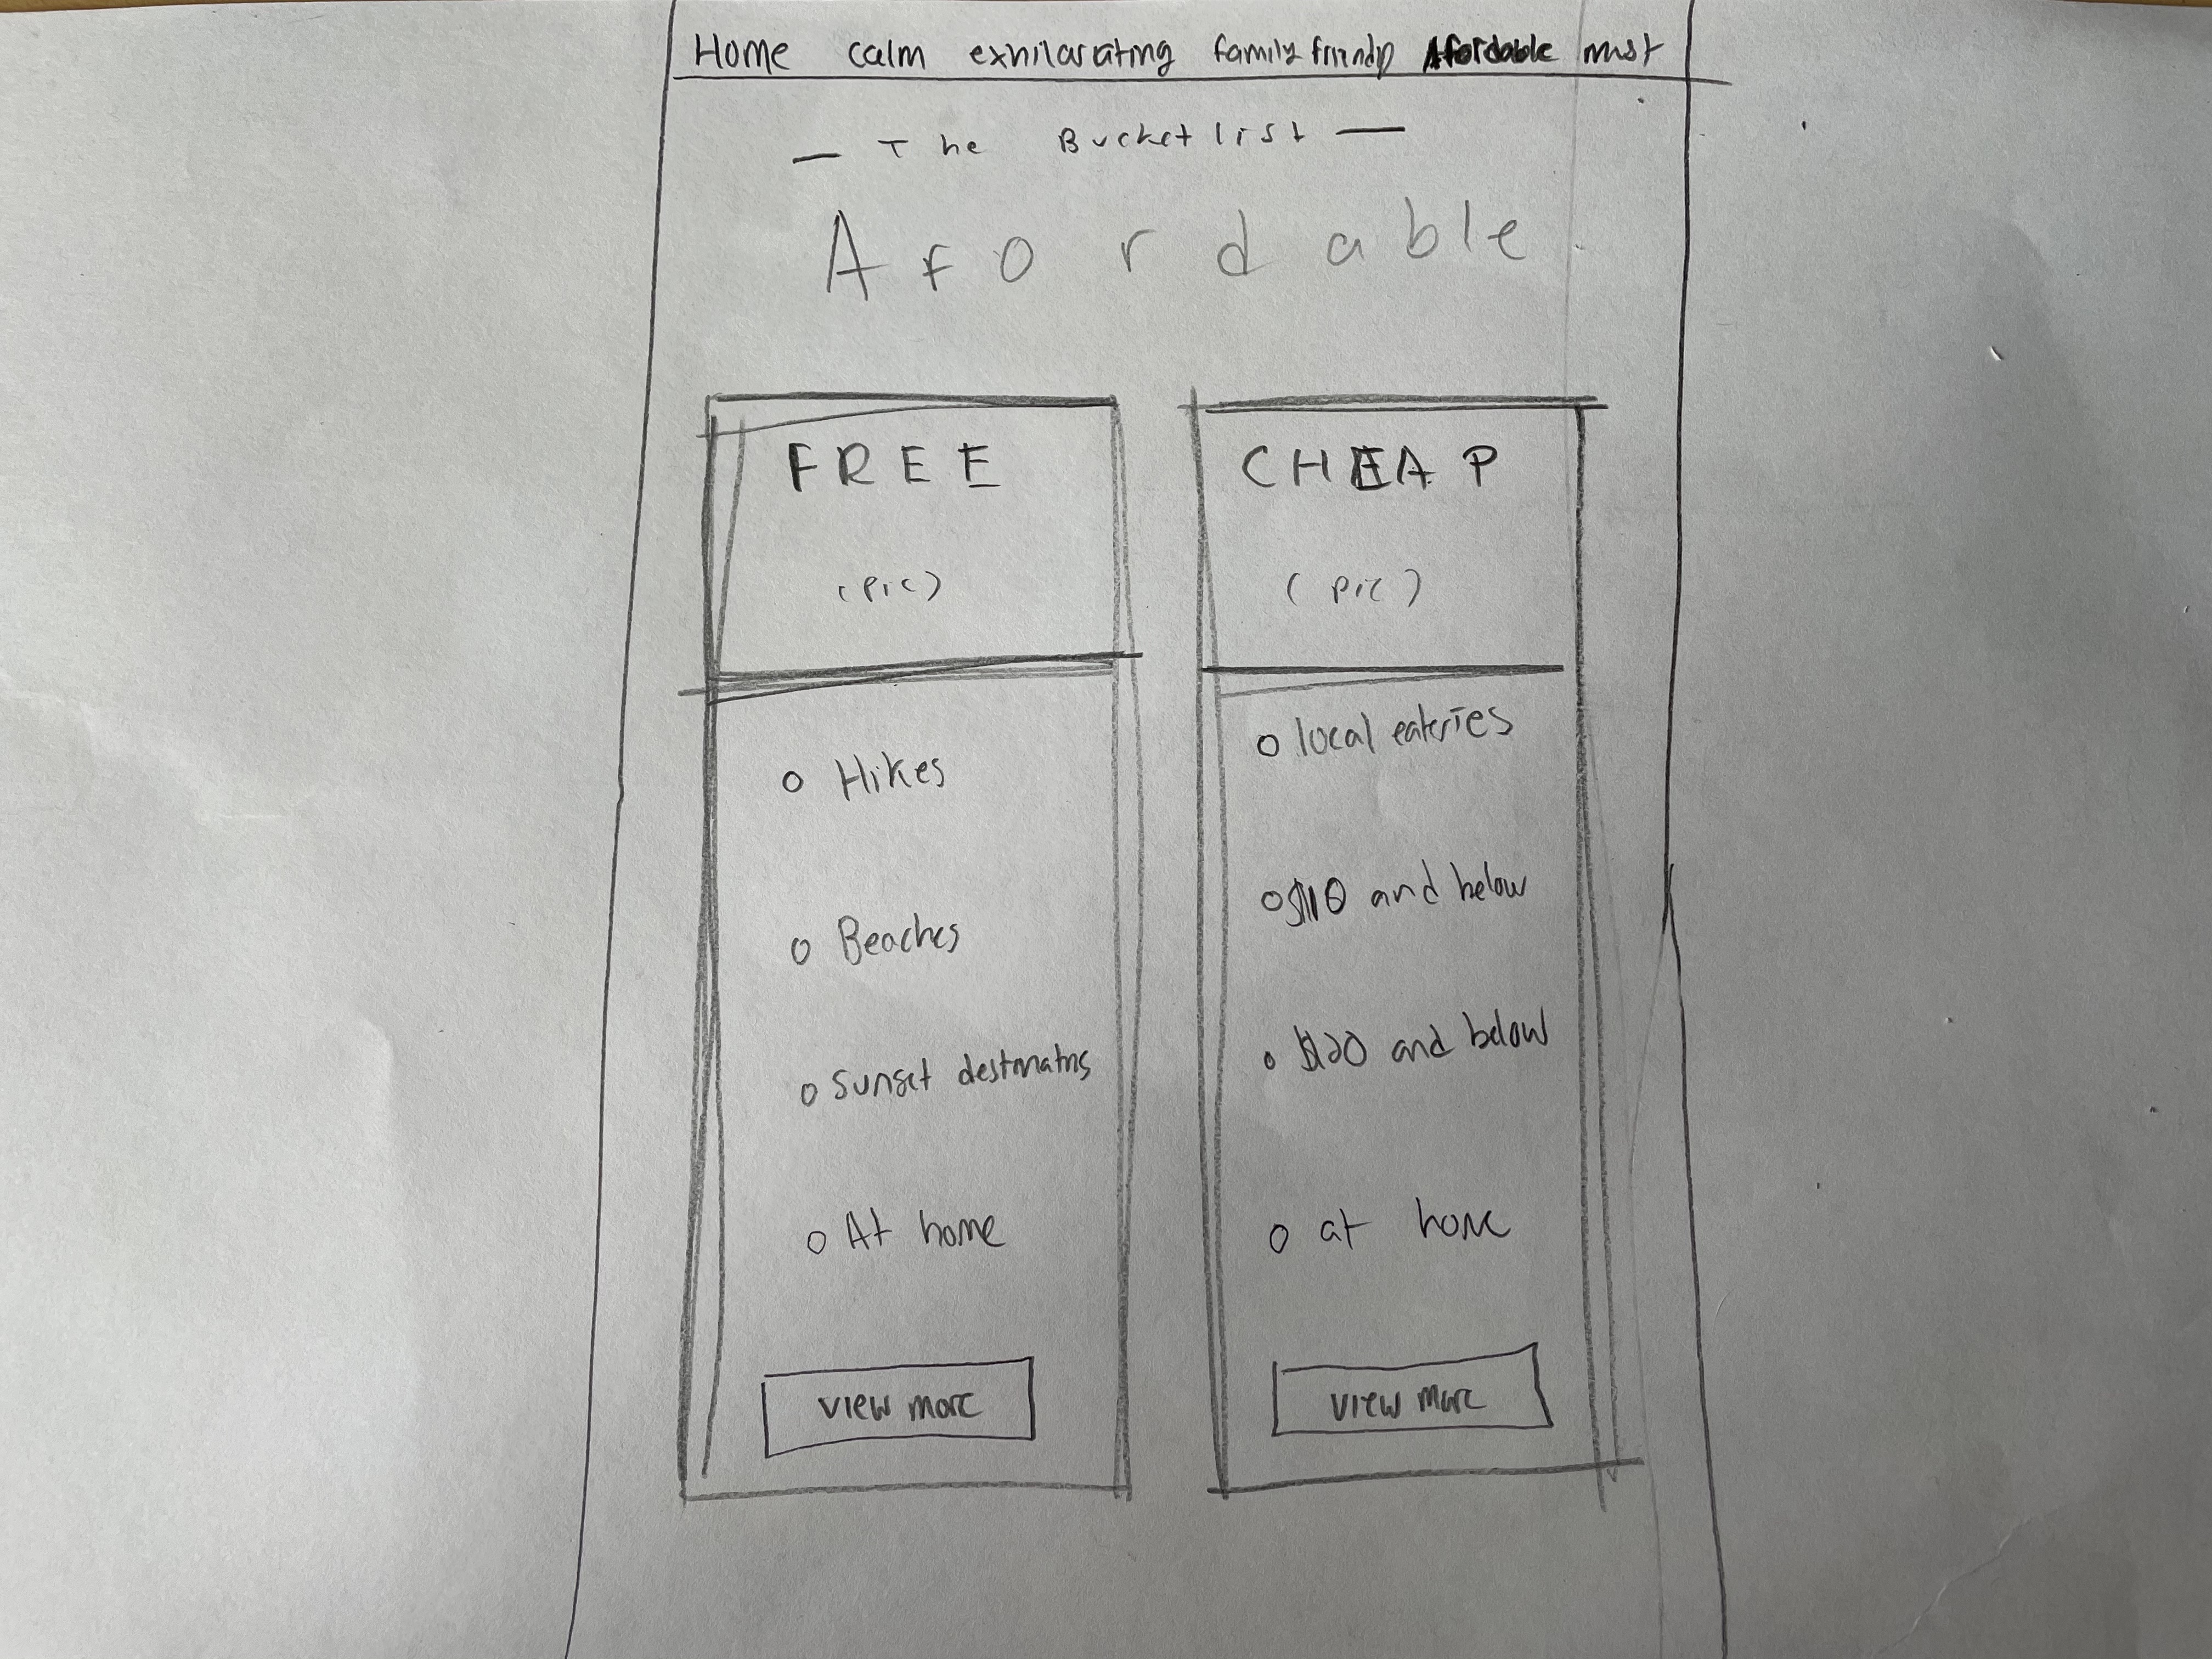 Home calm exhilarating family friendly Afordable must
— The Bucketlist —
Afordable
FREE
(pic)
o Hikes
o Beaches
o Sunset destinatns
o At home
view more
CHEAP
(pic)
o local eateries
o $10 and below
o $20 and below
o at home
view more